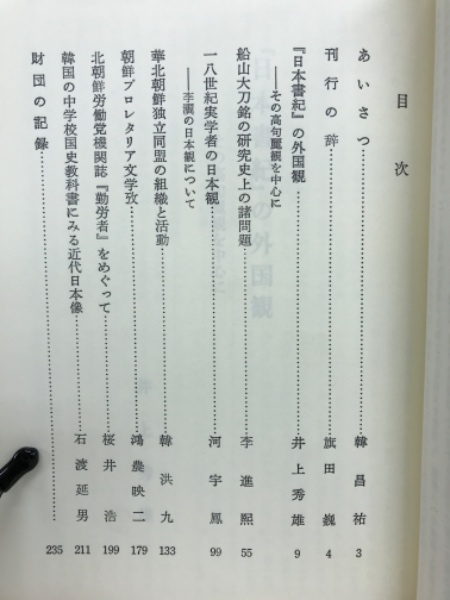 目次
あいさつ 韓昌祐 3
刊行の辞 旗田巍 4
『日本書紀』の外国観 井上秀雄 9
――その高句麗観を中心に
船山大刀銘の研究史上の諸問題 李進熙 55
一八世紀実学者の日本観 河宇鳳 99
――李瀷の日本観について
華北朝鮮独立同盟の組織と活動 韓洪九 133
朝鮮プロレタリア文学攷 鴻農映二 179
北朝鮮労働党機関誌『勤労者』をめぐって 桜井浩 199
韓国の中学校国史教科書にみる近代日本像 石渡延男 211
財団の記録 235